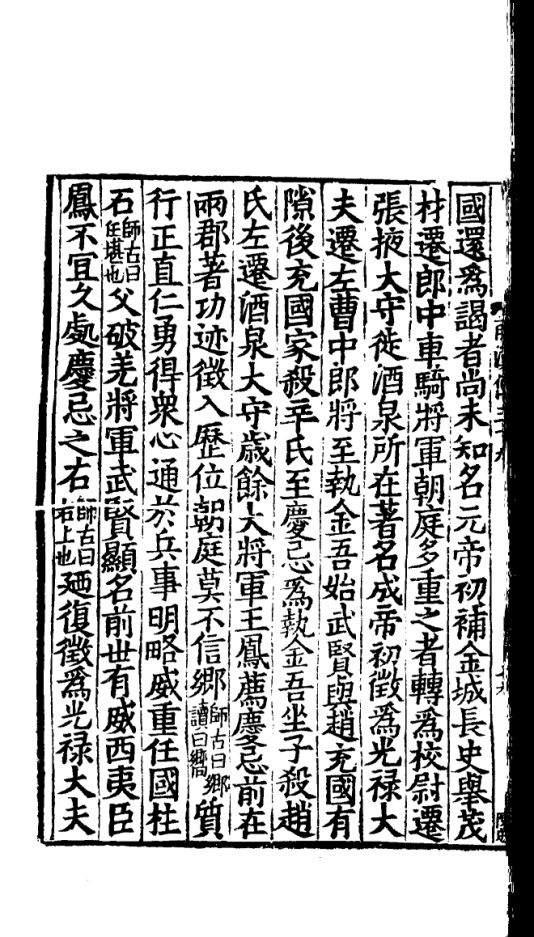 國還爲謁者尚未知名元帝初補金城長史舉茂
材遷郎中車騎將軍朝庭多重之者轉爲校尉遷
張掖大守徙酒泉所在著名成帝初徵爲光禄大
夫遷左曹中郎將至執金吾始武賢與趙充國有
隙後充國家殺辛氏至慶忌爲執金吾坐子殺趙
氏左遷酒泉大守歳餘大將軍王鳳薦慶忌前在
兩郡著功迹徵入歷位朝庭莫不信鄉師古曰鄉讀曰嚮質
行正直仁勇得衆心通於兵事明略威重任國柱
石師古曰任堪也父破羌將軍武賢顯名前世有威西夷臣
鳳不宜久處慶忌之右師古曰右上也廼復徵爲光禄大夫